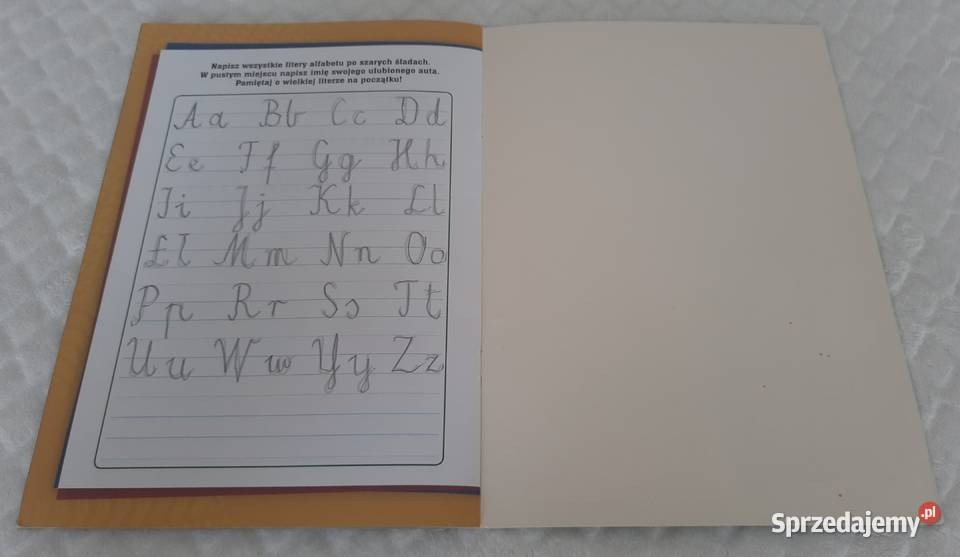 Napisz wszystkie litery alfabetu po szarych śladach.
W pustym miejscu napisz imię swojego ulubionego auta.
Pamiętaj o wielkiej literze na początku!
Aa Bb Cc Dd
Ee Ff Gg Hh
Ii Jj Kk Ll
Łł Mm Nn Oo
Pp Rr Ss Tt
Uu Ww Yy Zz
Sprzedajemy.pl